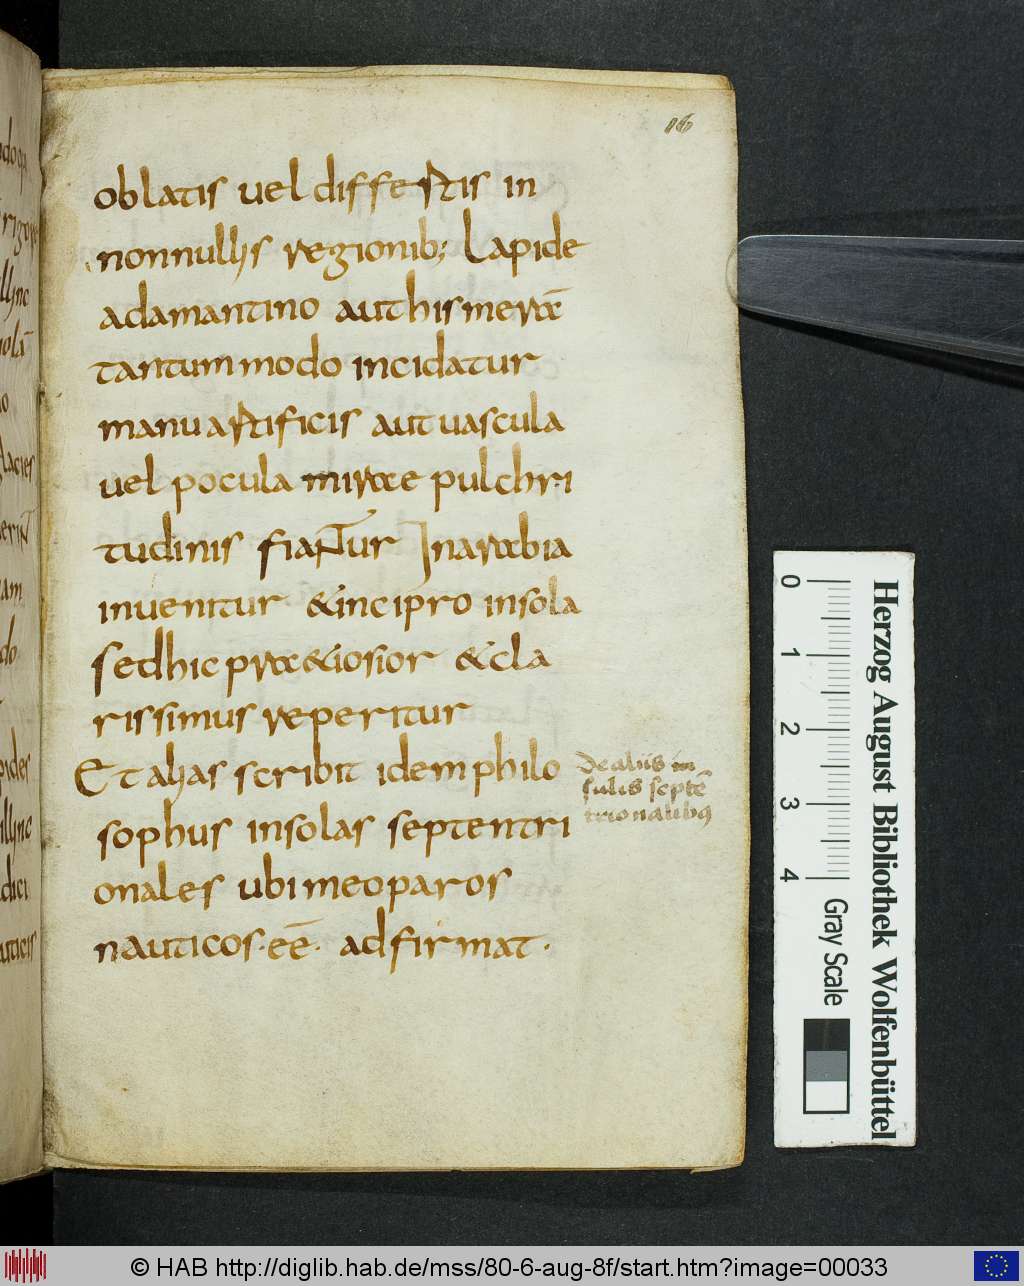 16
oblatis uel differtis in
nonnullis regionib; Lapide
adamantino aut hismerãe
tantummodo incidatur
manu artificis aut uascula
uel pocula mirae pulchri
tudinis fiant ur Inarabia
inuenitur &incipro insola
sedhic prae&iosior &cla
rissimus reperitur
Et alias scribit idem philo
sophus insolas septentri
onales ubi meoparos
nauticos·eē· adfirmat·
De aliis in
sulis septē
trionalibus
Herzog August Bibliothek Wolfenbüttel
0 1 2 3 4 Gray Scale
© HAB http://diglib.hab.de/mss/80-6-aug-8f/start.htm?image=00033